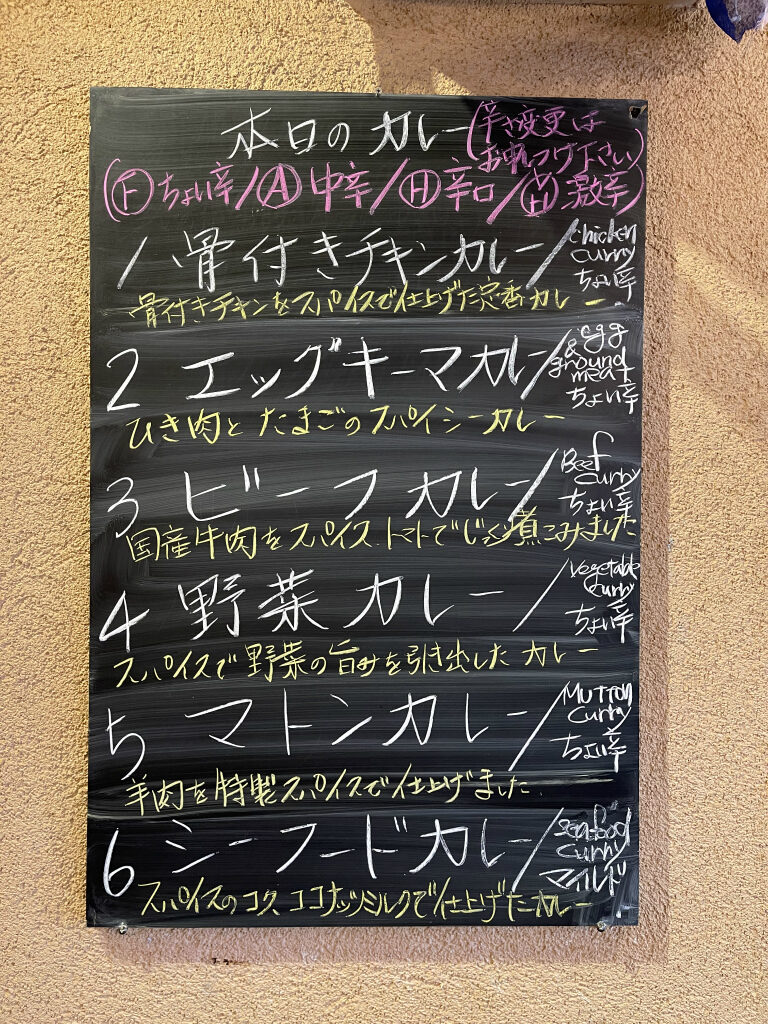 本日のカレー(辛さ変更は
お申しつけ下さい)
(Ⓕちょい辛/Ⓐ中辛/Ⓗ辛口/激辛)
1 骨付きチキンカレー/chicken
curry
ちょい辛
骨付きチキンをスパイスで仕上げた定番カレー
2 エッグキーマカレー/egg
&
ground
meat
ちょい辛
ひき肉とたまごのスパイシーカレー
3 ビーフカレー/Beef
curry
ちょい辛
国産牛肉をスパイス、トマトでじっくり煮こみました
4 野菜カレー/Vegetable
curry
ちょい辛
スパイスで野菜の旨みを引き出したカレー
5 マトンカレー/Mutton
curry
ちょい辛
羊肉を特製スパイスで仕上げました.
6 シーフードカレー/seafood
curry
マイルド
スパイスのコク、ココナッツミルクで仕上げたカレー